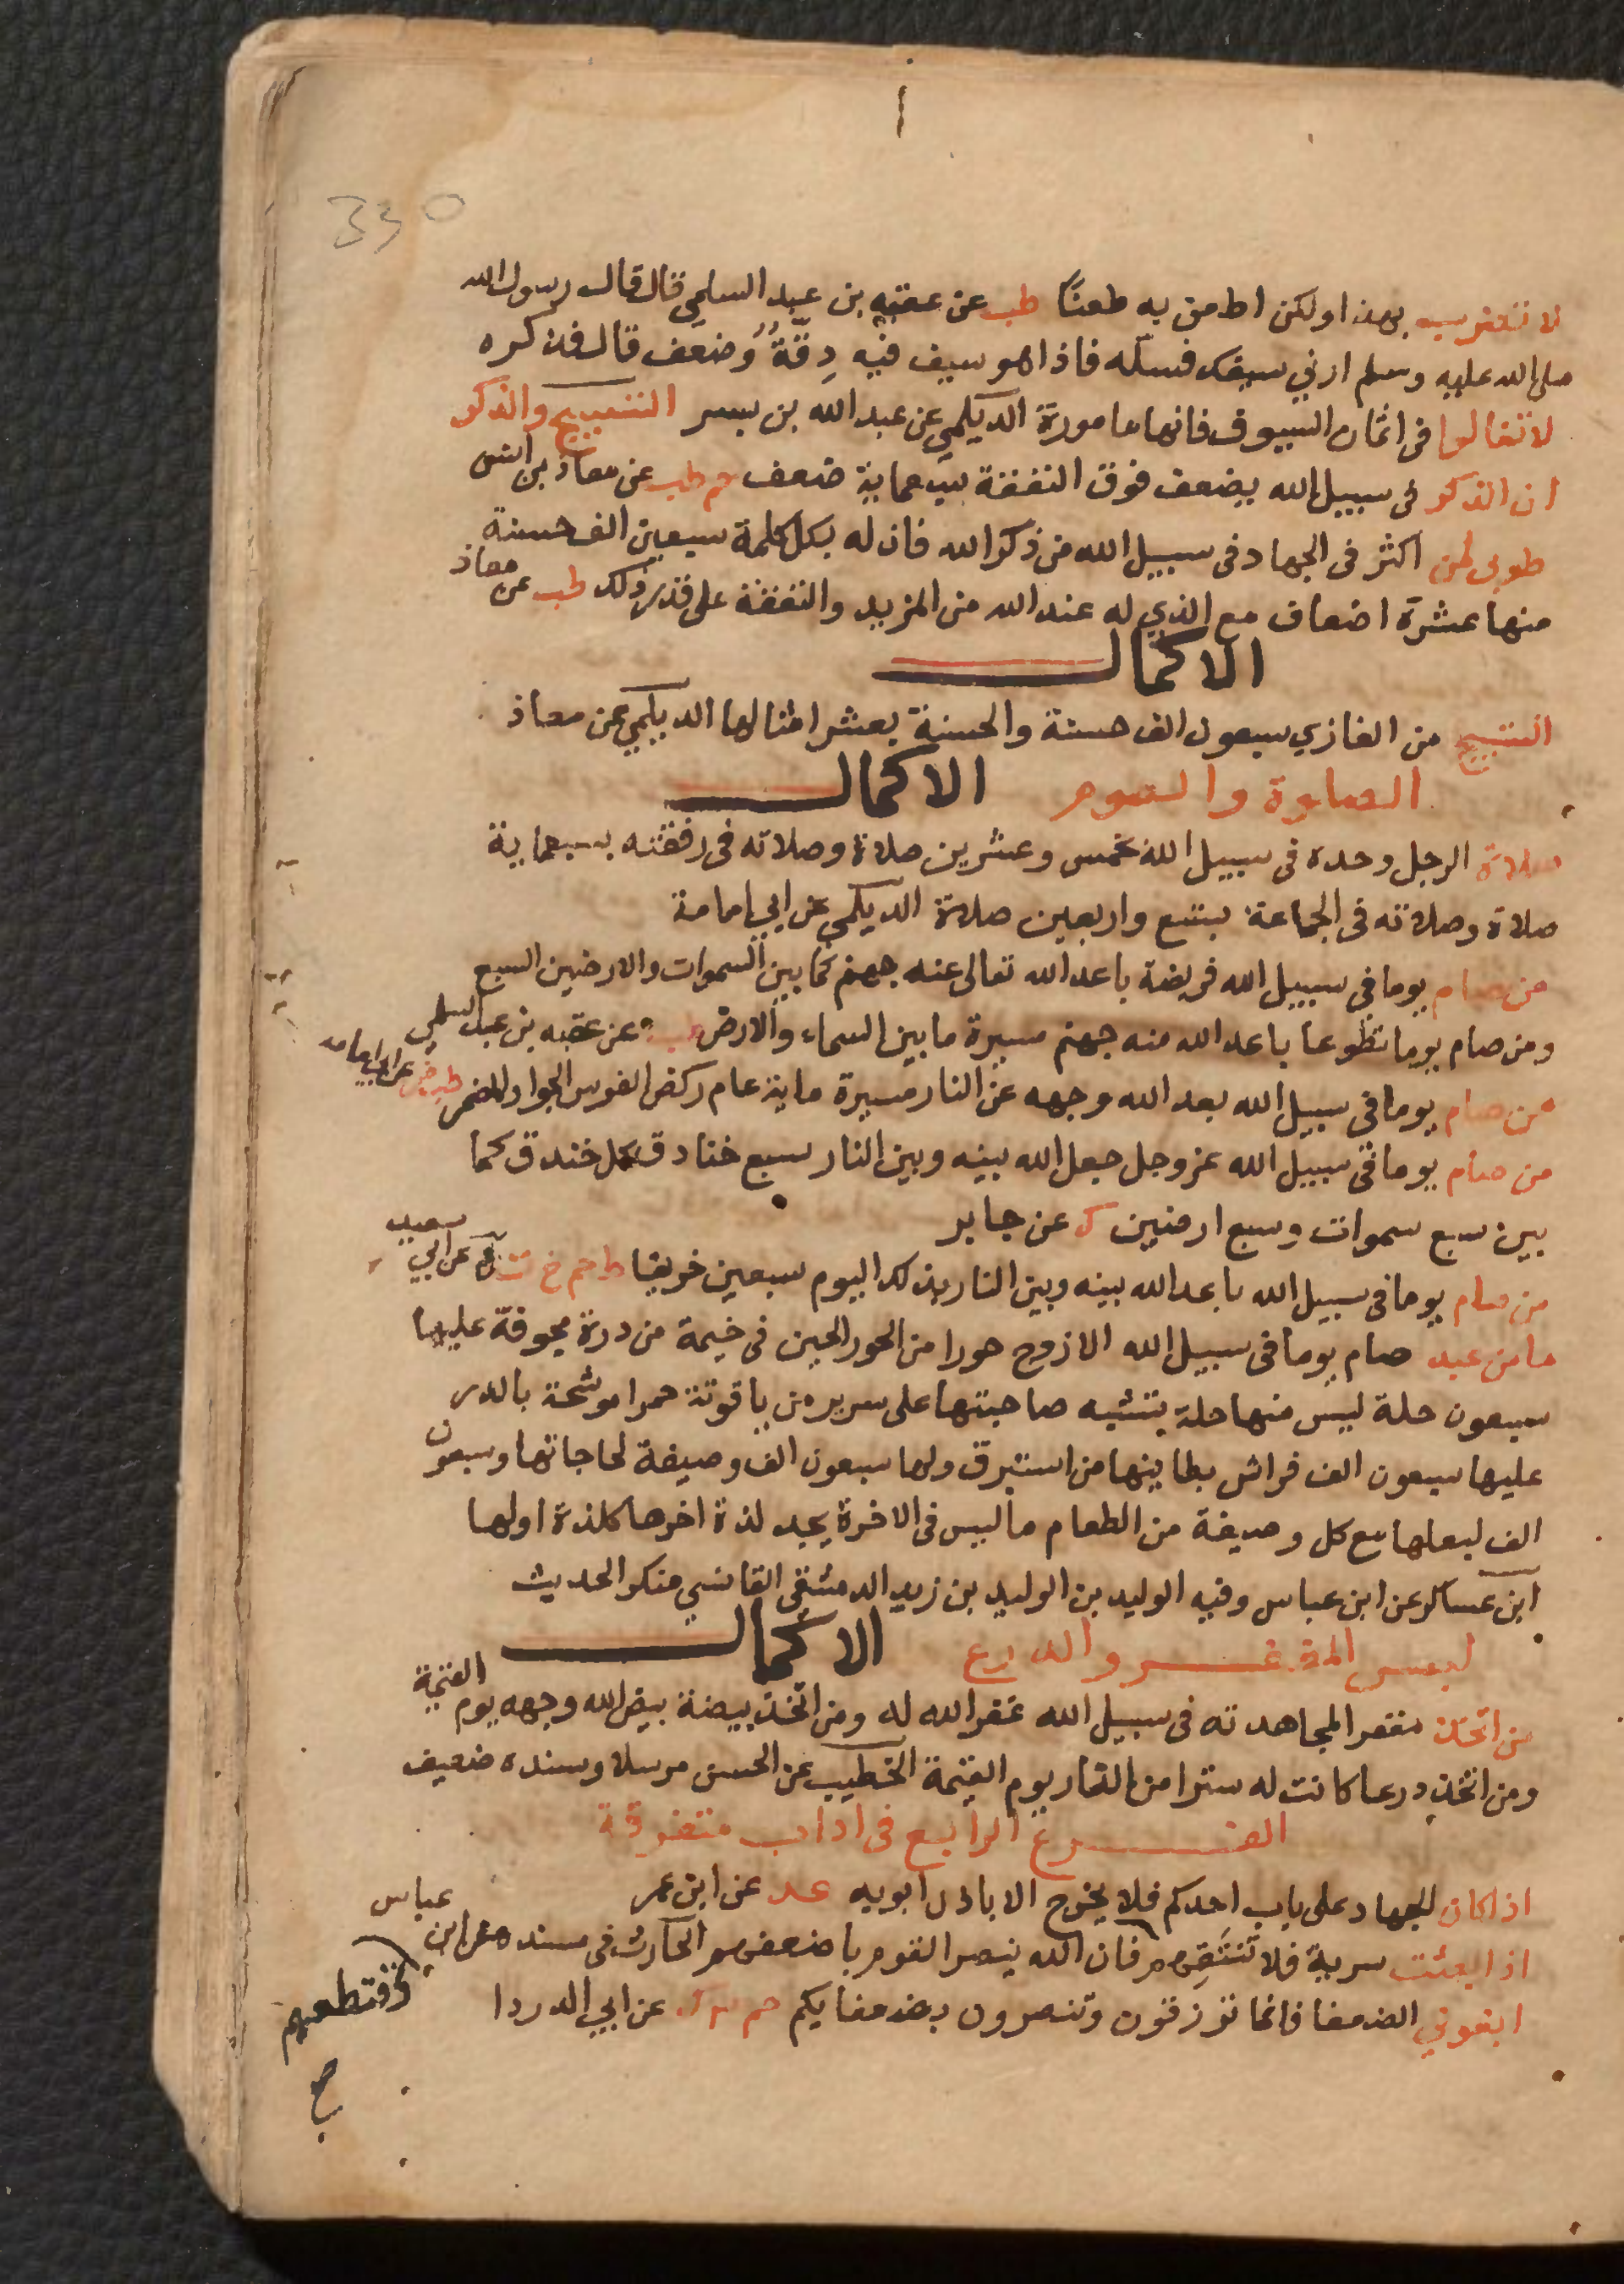 330
لا تضرب بهذا ولكن اطعن به طعنًا طب عن عقبه بن عبد السلمي قال قال رسول الله
صلى الله عليه وسلم ارني سيفك فسله فاذا هو سيف فيه دِقّةٌ وُضعف قال فذكره
لا تغالوا فى اثمان السيوف فانها مامورة الديلمي عن عبد الله بن بسر التسبيح والذكر
ان الذكر فى سبيل الله يضعف فوق النفقة سبعماية ضعف حم طب عن معاذ بن انس
طوبى لمن اكثر فى الجهاد فى سبيل الله من ذكر الله فان له بكل كلمة سبعين الف حسنة
منها عشرة اضعاف مع الذي له عند الله من المزيد والنفقة على قدر ذلك طب عن معاذ
الاكمال
التسبيح من الغازي سبعون الف حسنة والحسنة بعشر امثالها الديلمي عن معاذ
الصلوة والصوم الاكمال
صلاة الرجل وحده فى سبيل الله بخمس وعشرين صلاة وصلاته فى رفقته بسبعماية
صلاة وصلاته فى الجماعة بتسع واربعين صلاة الديلمي عن ابي امامة
من صام يوما فى سبيل الله فريضة باعد الله تعالى عنه جهنم كما بين السموات والارضين السبع
ومن صام يوما تطوعا باعد الله منه جهنم مسيرة ما بين السماء والارض طب عن عقبه بن عبد السلمي
من صام يوما فى سبيل الله بعد الله وجهه عن النار مسيرة ماية عام ركض الفرس الجواد المضمر طب عن ابي امامه
من صام يوما فى سبيل الله عز وجل جعل الله بينه وبين النار سبع خنادق كل خندق كما
بين سبع سموات وسبع ارضين ك عن جابر
من صام يوما فى سبيل الله باعد الله بينه وبين النار بذلك اليوم سبعين خريفا ط حم خ ت ن ه عن ابي سعيد
ما من عبد صام يوما فى سبيل الله الا زوج حورا من الحور العين فى خيمة من درة مجوفة عليها
سبعون حلة ليس منها حلة تشبه صاحبتها على سرير من ياقوتة حمرا موشحة بالدر
عليها سبعون الف فراش بطاينها من استبرق ولها سبعون الف وصيفة لحاجاتها وسبعون
الف لبعلها مع كل وصيفة من الطعام ما ليس فى الاخرة يجد لذة اخرها كلذة اولها
ابن عساكر عن ابن عباس وفيه الوليد بن الوليد بن زيد الدمشقى القاسي منكر الحديث
لبس المغفر والدرع الاكمال
من اتخذ مغفر المجاهدته فى سبيل الله غفر الله له ومن اتخذ بيضة بيض الله وجهه يوم القيمة
ومن اتخذ درعا كانت له سترا من النار يوم القيمة الخطيب عن الحسن مرسلا وسنده ضعيف
الفرع الرابع فى اداب متفرقة
اذا كان الجهاد على باب احدكم فلا يخرج الا باذن ابويه عد عن ابن عمر
اذا بعثت سرية فلا تَنتَقِهم فان الله ينصر القوم باضعفهم الحارث فى مسنده عن ابن عباس
وتقتطعهم
ابغوني الضعفا فانما ترزقون وتنصرون بضعفايكم حم ك عن ابي الدردا